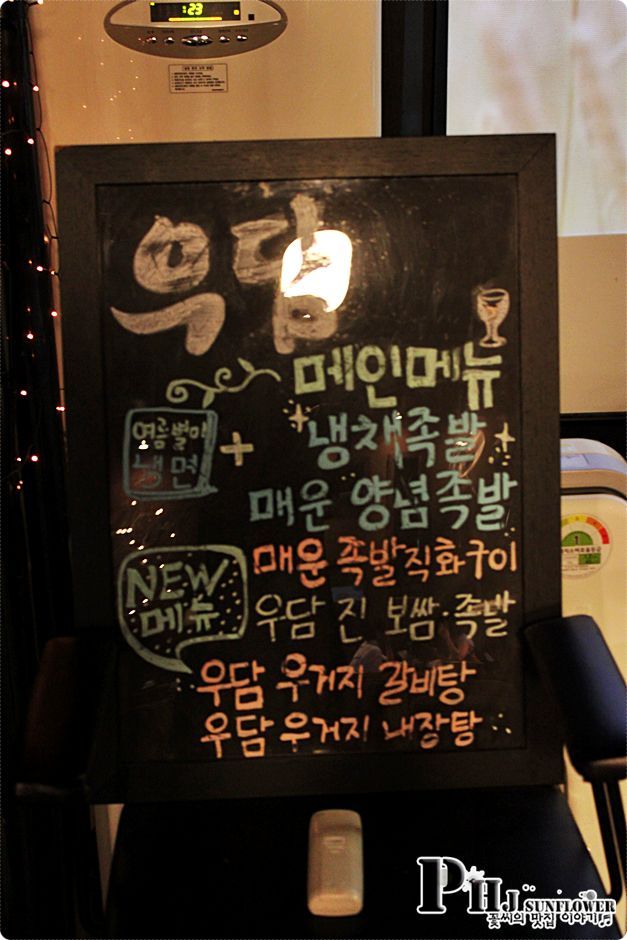 :23
우담
메인메뉴
여름별미
냉면
+
냉채족발
매운 양념족발
NEW
메뉴
매운 족발직화구이
우담 진 보쌈·족발
우담 우거지 갈비탕
우담 우거지 내장탕
1
PHJ SUNFLOWER
꽃씨의 맛집 이야기♫